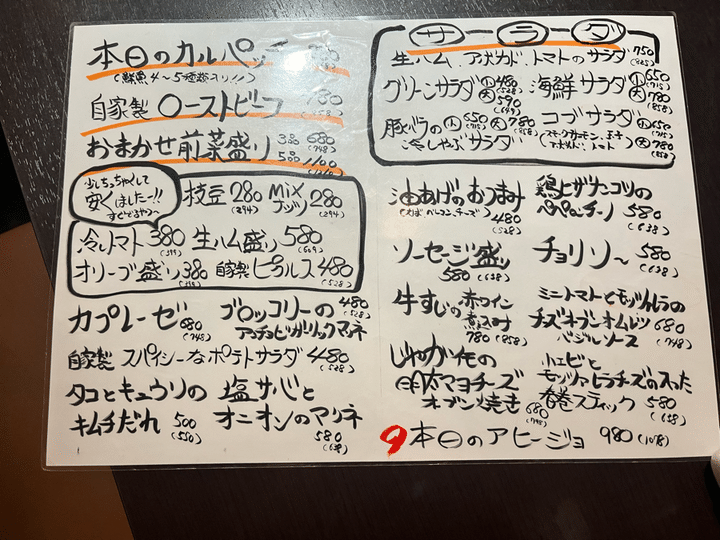 本日のカルパッチ
(鮮魚4〜5種盛り!!)
自家製 ローストビーフ 780
(858)
おまかせ前菜盛り 3品 680
(748)
5品 1100
少しちっちゃくして
安くしました〜!!
すぐでるやつ〜
枝豆 280
(294)
MIX
ナッツ 280
(294)
冷しトマト 380
生ハム盛り 580
(609)
オリーブ盛り 380
自家製 ピクルス 480
(528)
カプレーゼ 680
(748)
ブロッコリーの 480
(528)
アンチョビガーリックマヨネ
自家製 スパイシーなポテトサラダ 480
(528)
タコとキュウリの
キムチだれ 500
(550)
塩サバと
オニオンのマリネ
580
(638)
サラダ
生ハム、アボカド、トマトのサラダ 750
(825)
グリーンサラダ 小 480
(528)
大 590
(649)
海鮮サラダ 小 650
(715)
大 780
(858)
豚バラの 小 650
(715)
大 780
(858)
冷しゃぶサラダ
コブサラダ 小 650
(715)
スモークサーモン、玉子
アボカド、トマト
大 780
(858)
油あげのおつまみ
480
(528)
鶏ヒザナンコツの
ペペロンチーノ 580
(638)
ソーセージ盛り
580 (638)
チョリソー 580
(638)
牛すじの赤ワイン
煮込み
780 (858)
ミニトマトとモッツァレラの
チーズオーブンオムレツ 680
(748)
バジルソース
じゃが芋の
明太マヨチーズ
オーブン焼き 680
(748)
小エビと
モッツァレラチーズの入った
春巻スティック 580
(638)
9 本日のアヒージョ 980 (1078)